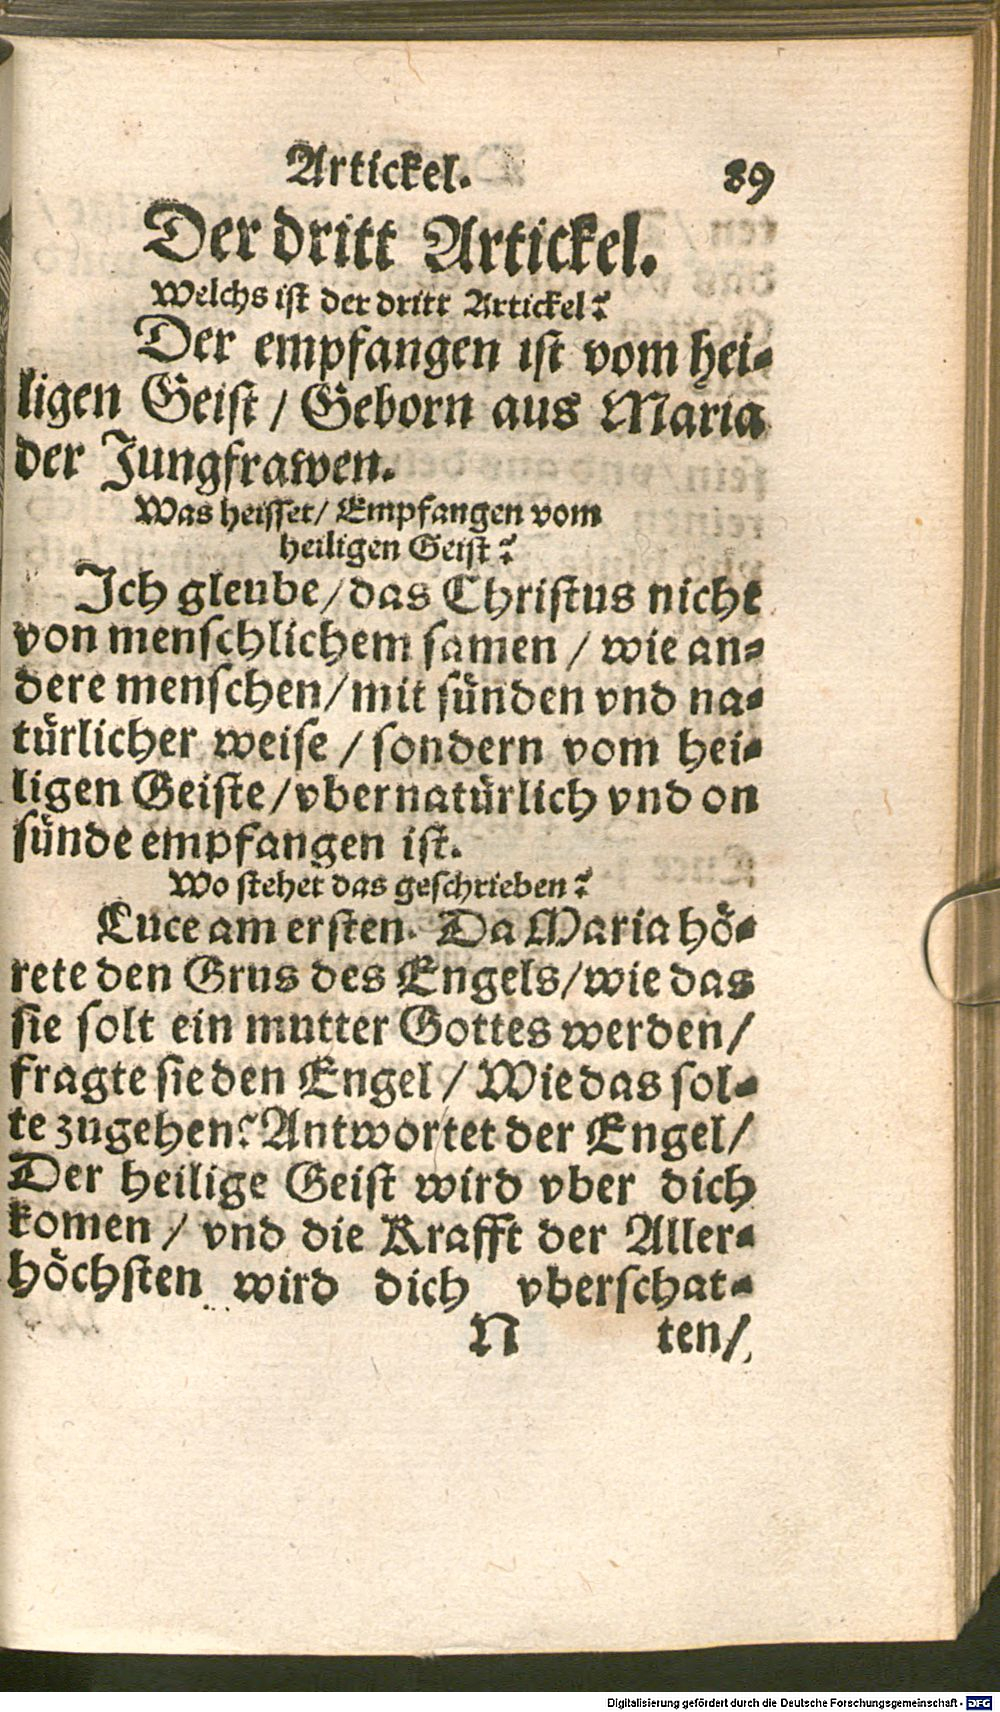 Artickel. 89
Der dritt Artickel.
Welchs ist der dritt Artickel?
Der empfangen ist vom hei-
ligen Geist / Geborn aus Maria
der Jungfrawen.
Was heisset / Empfangen vom
heiligen Geist?
Ich gleube / das Christus nicht
von menschlichem samen / wie an-
dere menschen / mit sünden vnd na-
türlicher weise / sondern vom hei-
ligen Geiste / vbernatürlich vnd on
sünde empfangen ist.
Wo stehet das geschrieben?
Luce am ersten. Da Maria hö-
rete den Grus des Engels / wie das
sie solt ein mutter Gottes werden /
fragte sie den Engel / Wie das sol-
te zugehen? Antwortet der Engel /
Der heilige Geist wird vber dich
komen / vnd die Krafft der Aller-
höchsten wird dich vberschat-
N ten /
Digitalisierung gefördert durch die Deutsche Forschungsgemeinschaft - DFG